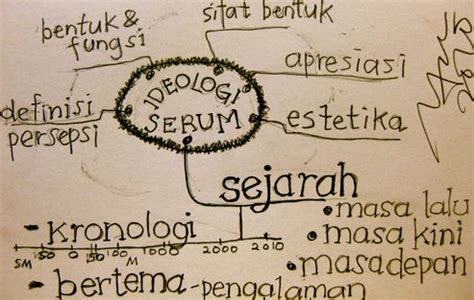 bentuk &
fungsi
sifat bentuk
apresiasi
IDEOLOGI
SERUM
definisi
persepsi
estetika
sejarah
- kronologi
SM 50 0 50 100 M 1000 2000 2010
• masa lalu
• masa kini
• masadepan
- bertema - pengalaman